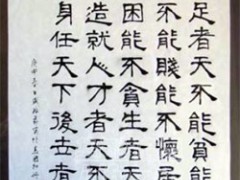 足者天不能貧能
不能賤能不懷居
困能不貪生者天
造就人才者天不
身任天下後世者